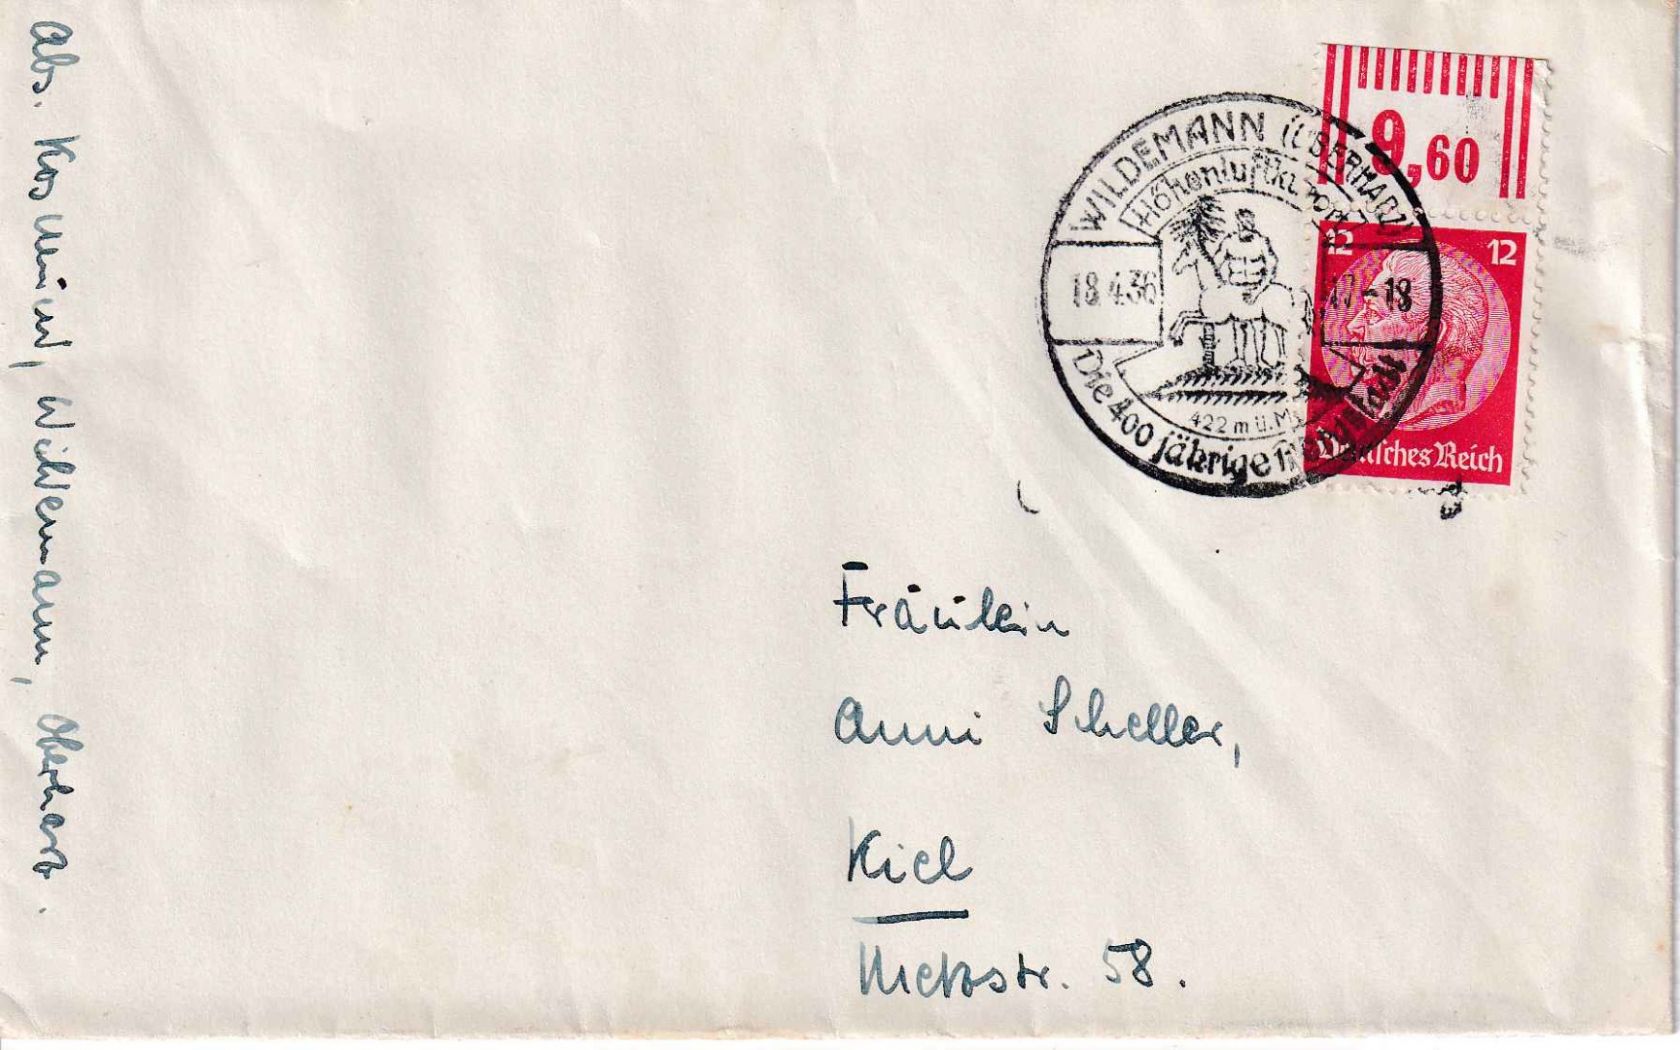 Abs. Kosmein, Wildemann, Oberharz.
9,60
WILDEMANN (OBERHARZ)
Höhenluftkurort
18.4.36
17-18
422 m ü.M.
Die 400 jährige Bergstadt
12 12
Deutsches Reich
Fräulein
Anni Scheller,
Kiel
Metzstr. 58.